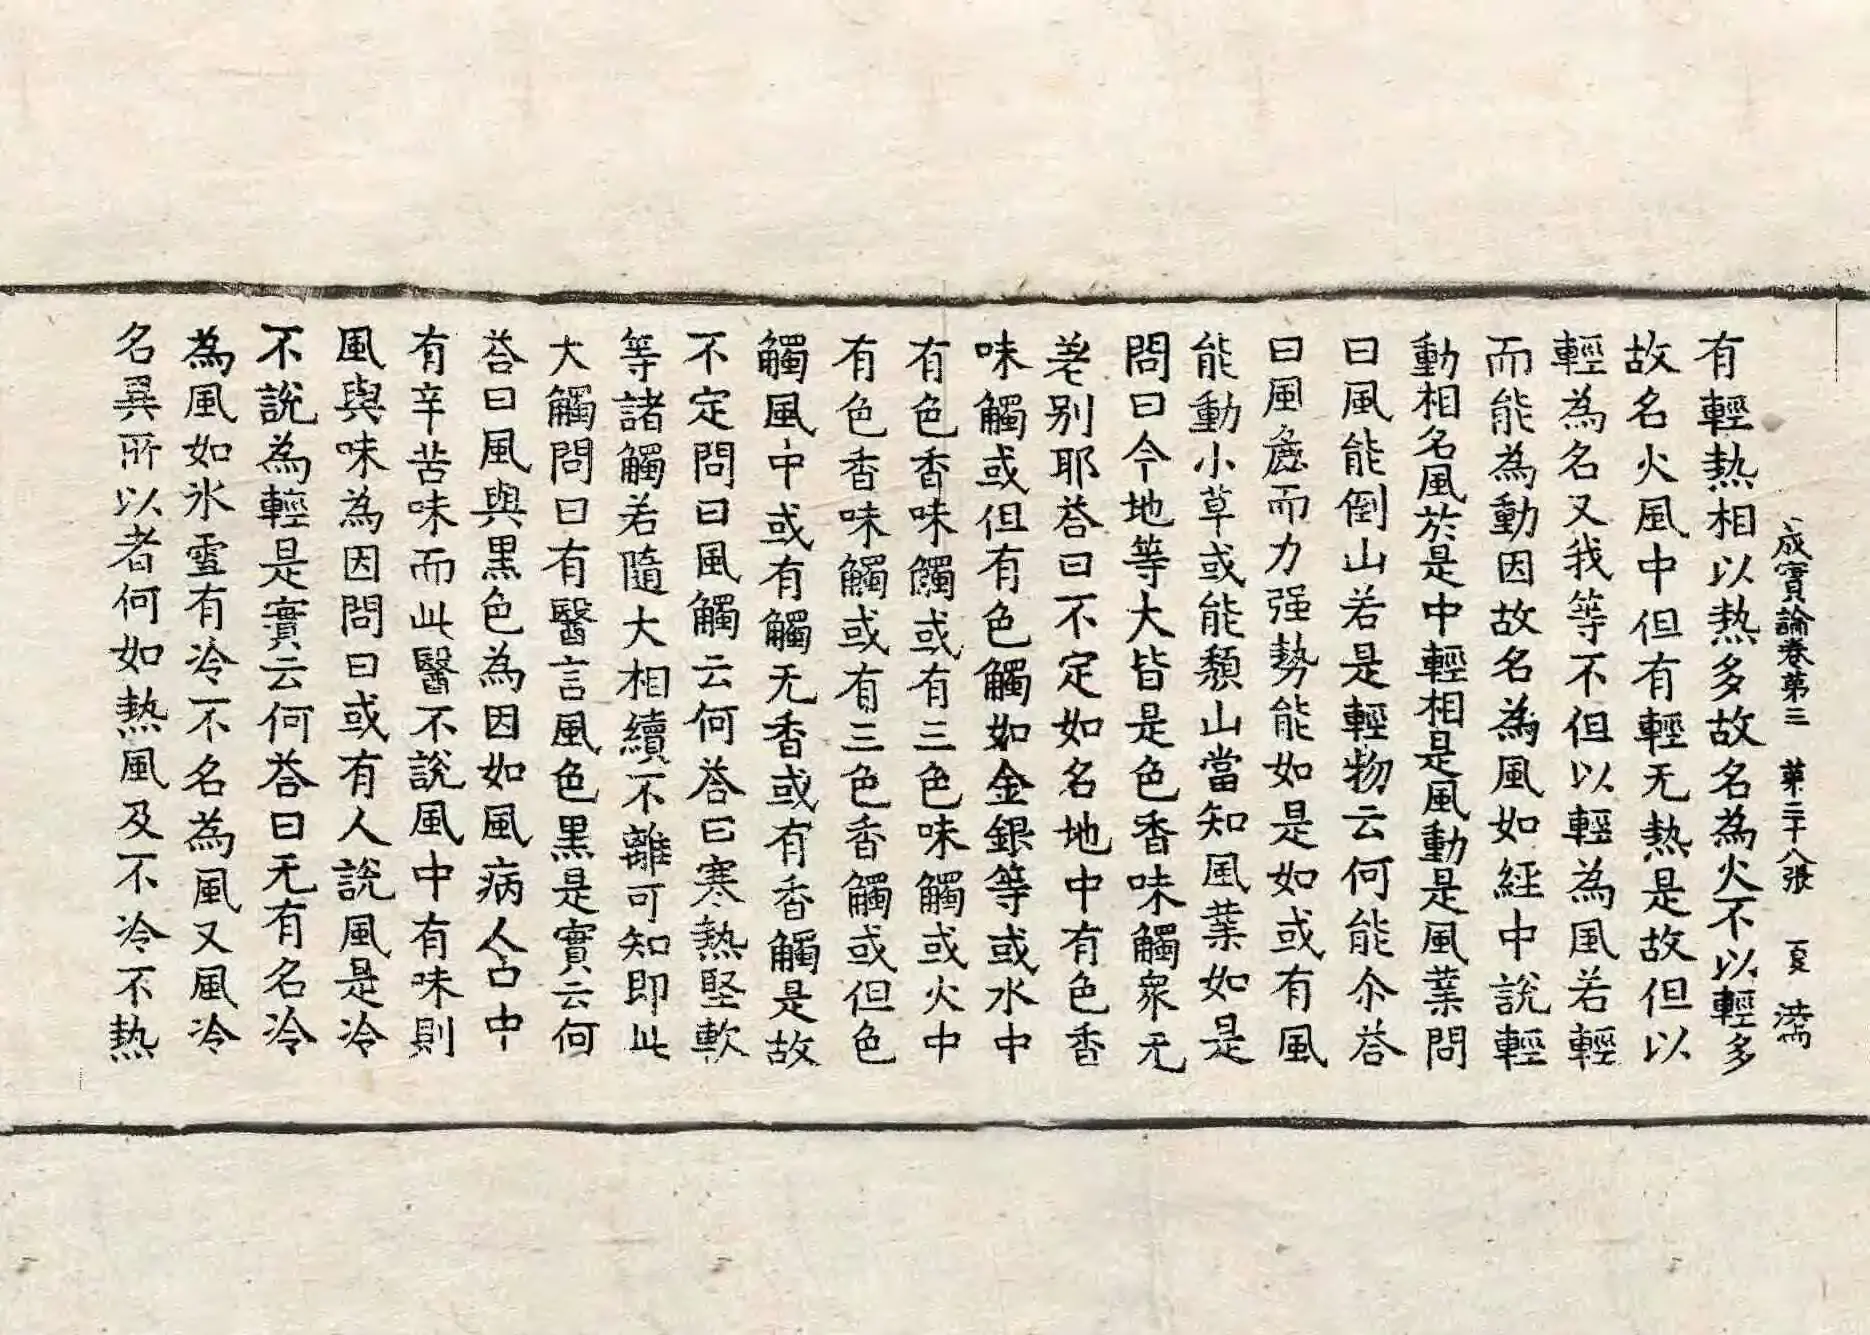 成實論卷第三　第三十八張　夏
有輕熱相以熱多故名為火不以輕多
故名火風中但有輕无熱是故但以
輕為名又我等不但以輕為風若輕
而能為動因故名為風如經中說輕
動相名風於是中輕相是風動是風業問
曰風能倒山若是輕物云何能尒荅
曰風麁而力强勢能如是如或有風
能動小草或能頹山當知風業如是
問曰今地等大皆是色香味觸衆无
差别耶荅曰不定如名地中有色香
味觸或但有色觸如金銀等或水中
有色香味觸或有三色味觸或火中
有色香味觸或有三色香觸或但色
觸風中或有觸无香或有香觸是故
不定問曰風觸云何荅曰寒熱堅軟
等諸觸若隨大相續不離可知即此
大觸問曰有醫言風色黑是實云何
荅曰風與黑色為因如風病人口中
有辛苦味而此醫不說風中有味則
風與味為因問曰或有人說風是冷
不說為輕是實云何荅曰无有名冷
為風如氷雪有冷不名為風又風冷
名異所以者何如熱風及不冷不熱